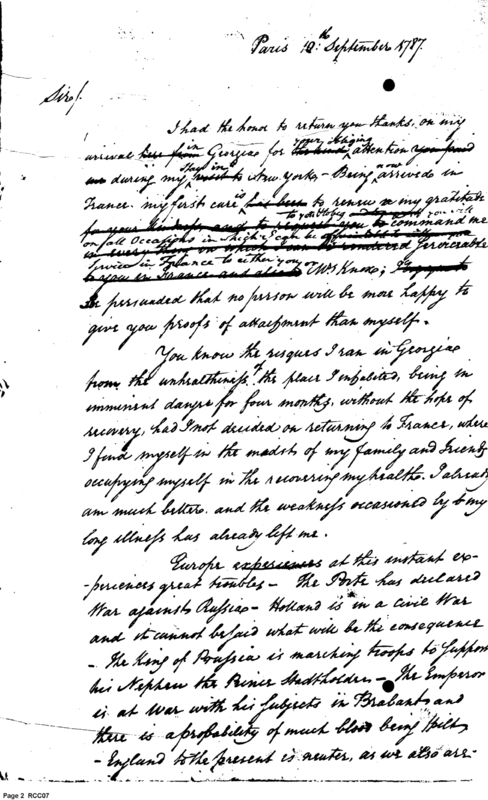 Paris 10.th September 1787.
Sir/.
I had the honor to return you thanks, on my
arrival here from in Georgia for the kind your obliging attention you paid
me during my stay in New York - Being now arrived in
France, my first care is has been to renew my gratitude
to your kindness and to request you to command me
on all Occasions in which I can be
Servicerable
Service in France to either you or
to you in France and also to Mrs Knox;
persuaded that no person will be more happy to
give you proofs of attachment than myself.
You know the risques I ran in Georgia
from the unhealthiness of the place I inhabited, being in
imminent danger for four months, without the hope of
recovery, had I not decided on returning to France, where
I find myself in the midst of my family and Friends
occupying myself in the recovering my health. I already
am much better, and the weakness occasioned by my
long illness has already left me.
Europe experiences at this instant ex-
-periences great troubles - The Porte has declared
War against Russia - Holland is in a Civil War
and it cannot be said what will be the consequence
- The King of Prussia is marching troops to Support
his Nephew the Prince Stadtholder - The Emperor
is at War with his Subjects in Brabant and
there is a probability of much blood being spilt
- England to the present is neuter, as we also are -
Page 2 RCC07